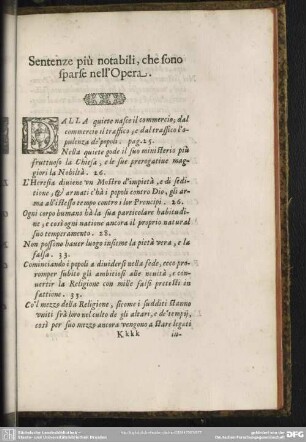 Sentenze più notabili, che sono
sparse nell'Opera.
DALLA quiete nasce il commercio, dal
commercio il traffico, e dal traffico l'o-
pulenza de' popoli. pag. 25.
Nella quiete gode il suo ministerio più
fruttuoso la Chiesa, e le sue prerogative mag-
giori la Nobiltà. 26.
L'Heresia diviene vn Mostro d'impietà, e di sedi-
tione, & armati c'hà i popoli contro Dio, gli ar-
ma all'istesso tempo contro i lor Prencipi. 26.
Ogni corpo humano hà la sua particolare habitudi-
ne, e così ogni natione ancora il proprio natural
suo temperamento. 28.
Non possino hauer luogo insieme la pietà vera, e la
falsa. 33.
Cominciando i popoli a diuidersi nella fede, ecco pro-
romper subito gli ambitiosi alle nouità, e con-
uertir la Religione con mille falsi pretesti in
fattione. 33.
Co'l mezzo della Religione, sicome i sudditi stanno
vniti frà loro nel culto de gli altari, e de' tempij,
così per suo mezzo ancora vengono a stare legati
Kkkk in-